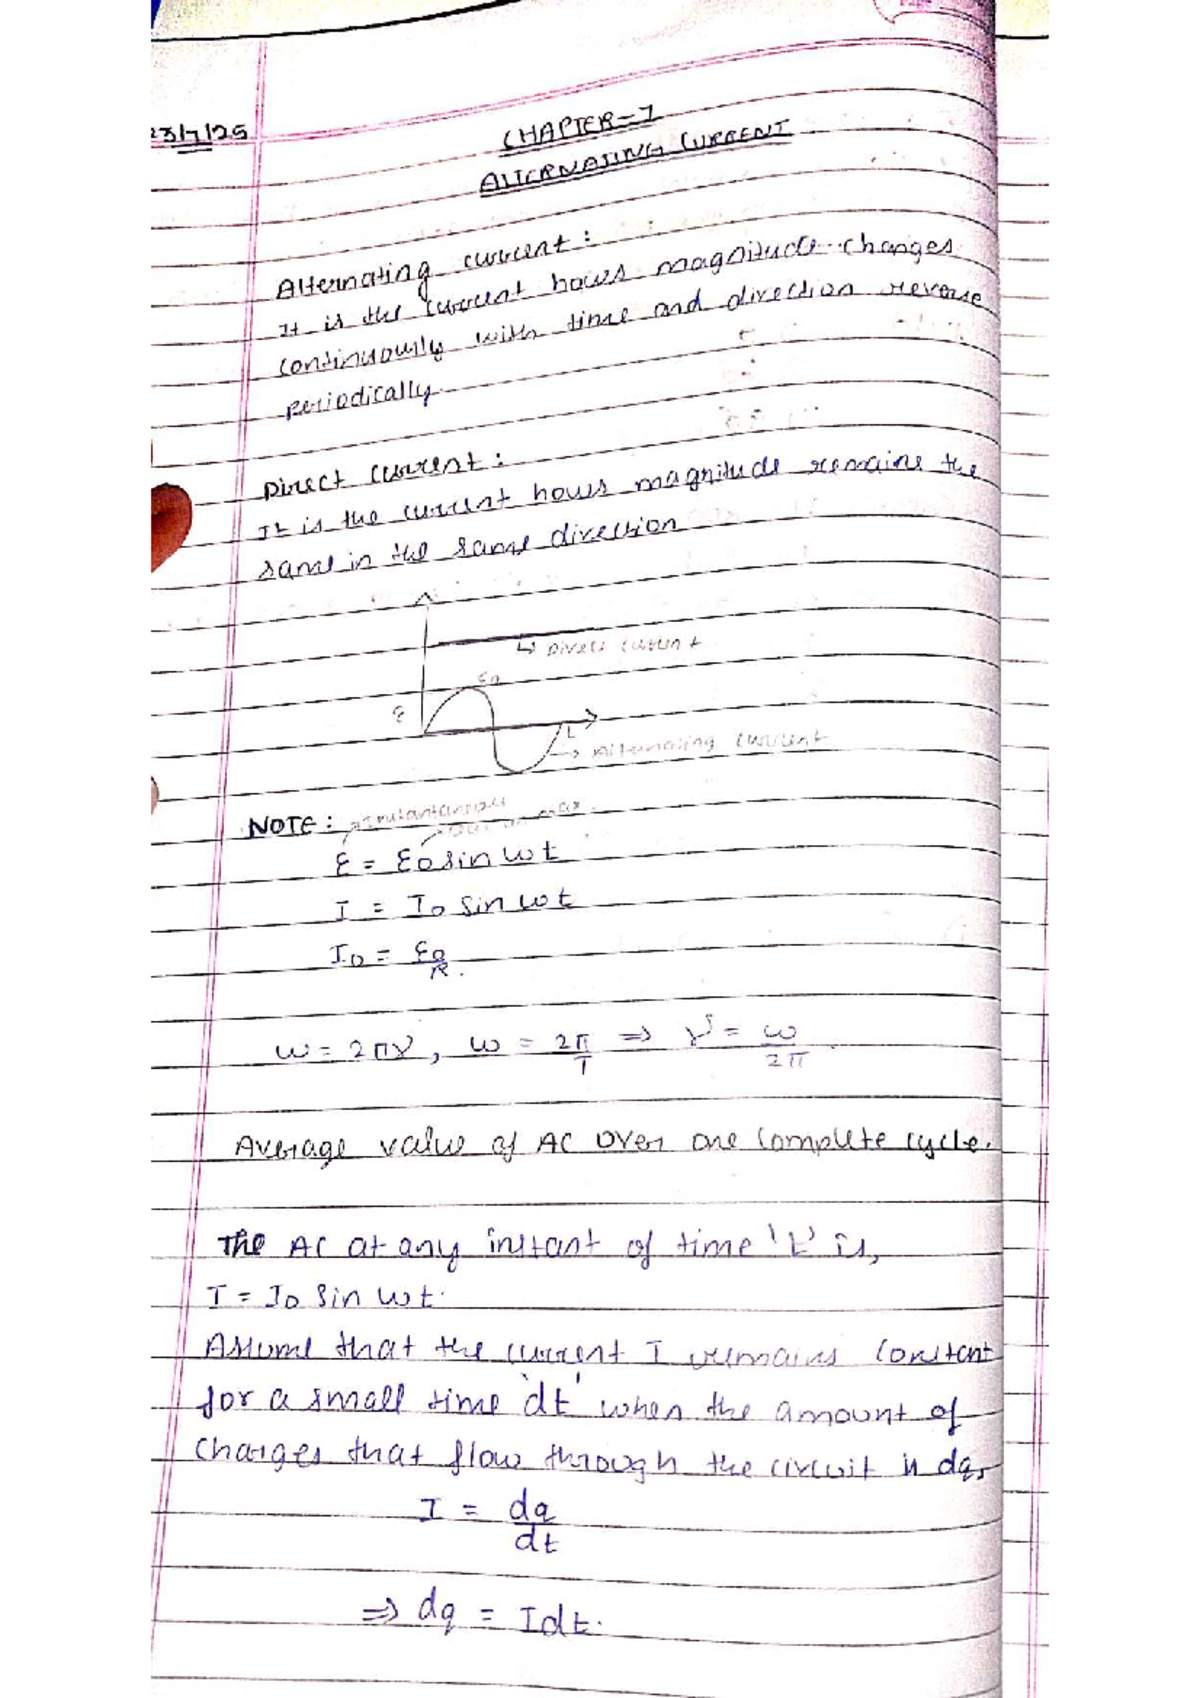 23/7/25
CHAPTER-7
ALTERNATING CURRENT
Alternating current :
It is the current hows magnitude changes
continuously with time and direction reverse
periodically.
Direct current :
It is the current hows magnitude remains the
same in the same direction
↳ Direct current
ε0
ε
t
→ Alternating current
NOTE :
max
ε = ε0 sin ωt
I = I0 sin ωt
I0 = ε0/R.
ω = 2πν, ω = 2π/T ⇒ ν = ω/2π.
Average value of AC over one complete cycle.
The AC at any instant of time 't' is,
I = I0 sin ωt.
Assume that the current I remains constant
for a small time 'dt' when the amount of
charges that flow through the circuit is dq,
I = dq/dt
⇒ dq = Idt.